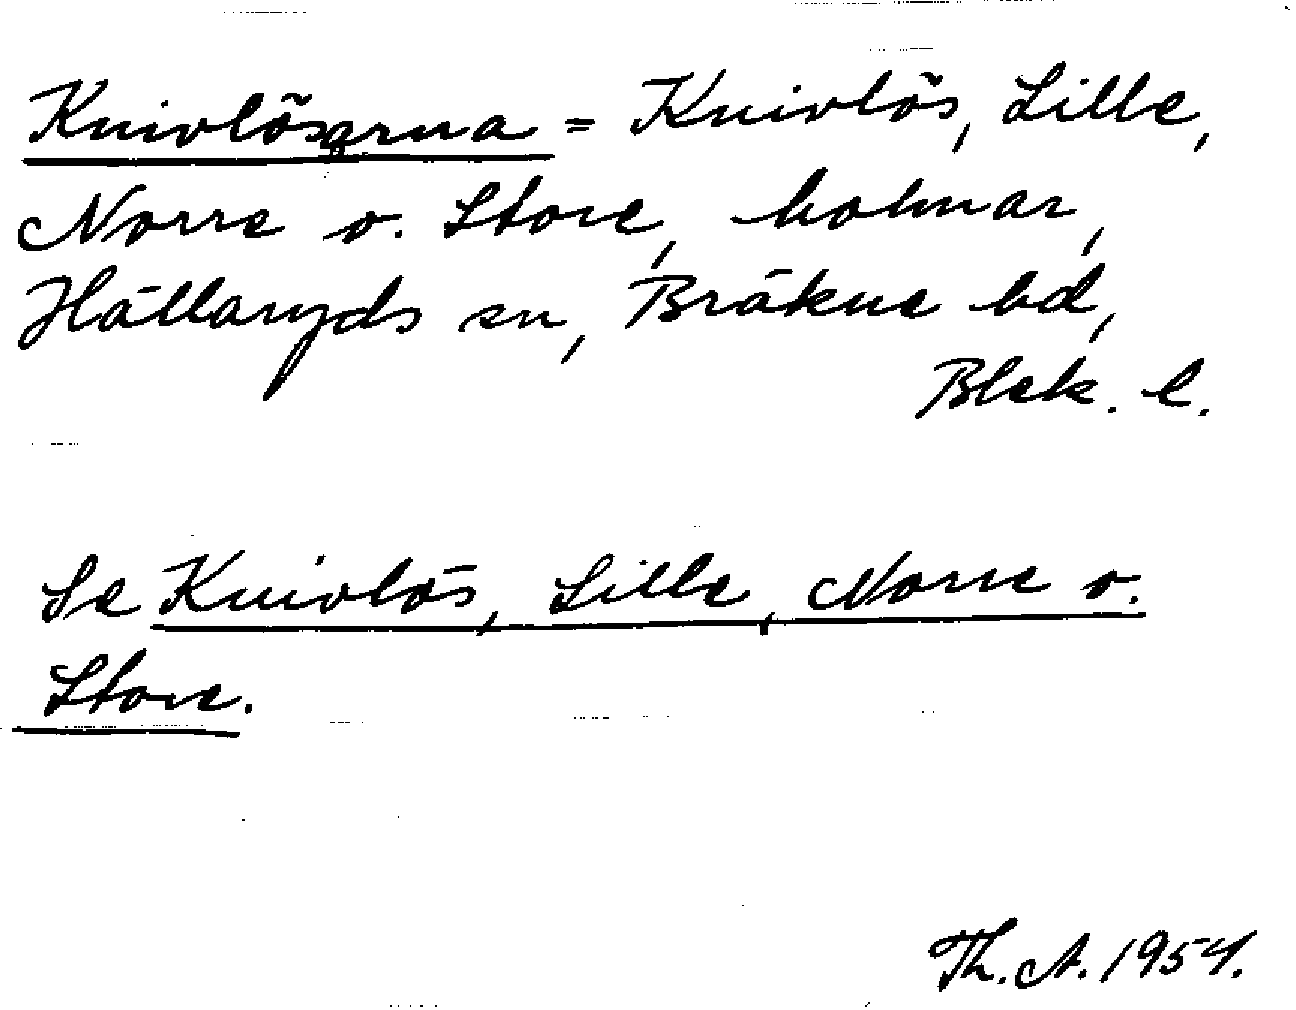 Knivlösarna = Knivlös, Lille,
Norre o. Store, holmar,
Hällaryds sn, Bräkne hd,
Blek. l.
Se Knivlös, Lille, Norre o.
Store.
Th. A. 1954.